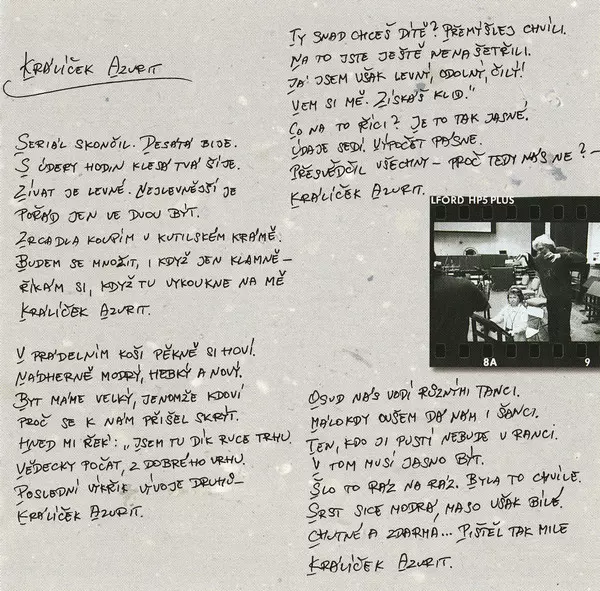 KRÁLÍČEK AZURIT
SERIÁL SKONČIL. DESÁTÁ BIJE.
S ÚDERY HODIN KLESÁ TVÁ ŠÍJE.
ZÍVAT JE LEVNÉ. NEJLEVNĚJŠÍ JE
POŘÁD JEN VE DVOU BÝT.
ZRCADLA KOUPÍM V KUTILSKÉM KRÁMĚ.
BUDEM SE MNOŽIT, I KDYŽ JEN KLAMNĚ –
ŘÍKÁM SI, KDYŽ TU VYKOUKNE NA MĚ
KRÁLÍČEK AZURIT.
V PRÁDELNÍM KOŠI PĚKNĚ SI HOVÍ.
NÁDHERNĚ MODRÝ, HEBKÝ A NOVÝ.
BYT MÁME VELKÝ, JENOMŽE KDOVÍ
PROČ SE K NÁM PŘIŠEL SKRÝT.
HNED MI ŘEK': „JSEM TU DÍK RUCE TRHU.
VĚDECKY POČAT, Z DOBRÉHO VRHU.
POSLEDNÍ VÝKŘIK VÝVOJE DRUHŮ –
KRÁLÍČEK AZURIT.
TY SNAD CHCEŠ DÍTĚ? PŘEMÝŠLEJ CHVÍLI.
NA TO JSTE JEŠTĚ NENAŠETŘILI.
JÁ JSEM VŠAK LEVNÝ, ODOLNÝ, ČILÝ!
VEM SI MĚ. ZÍSKÁŠ KLID."
CO NA TO ŘÍCI? JE TO TAK JASNÉ.
ÚDAJE SEDÍ. VÝPOČET PASNE.
PŘESVĚDČIL VŠECHNY – PROČ TEDY NÁS NE? –
KRÁLÍČEK AZURIT.
LFORD HP5 PLUS
8A 9
OSUD NÁS VODÍ RŮZNÝMI TANCI.
MÁLOKDY OVŠEM DÁ NÁM I ŠANCI.
TEN, KDO JI PUSTÍ NEBUDE V RANCI.
V TOM MUSÍ JASNO BÝT.
ŠLO TO RÁZ NA RÁZ. BYLA TO CHVÍLE.
SRST SICE MODRÁ, MASO VŠAK BÍLÉ.
CHUTNÉ A ZDARMA... PIŠTĚL TAK MILE
KRÁLÍČEK AZURIT.